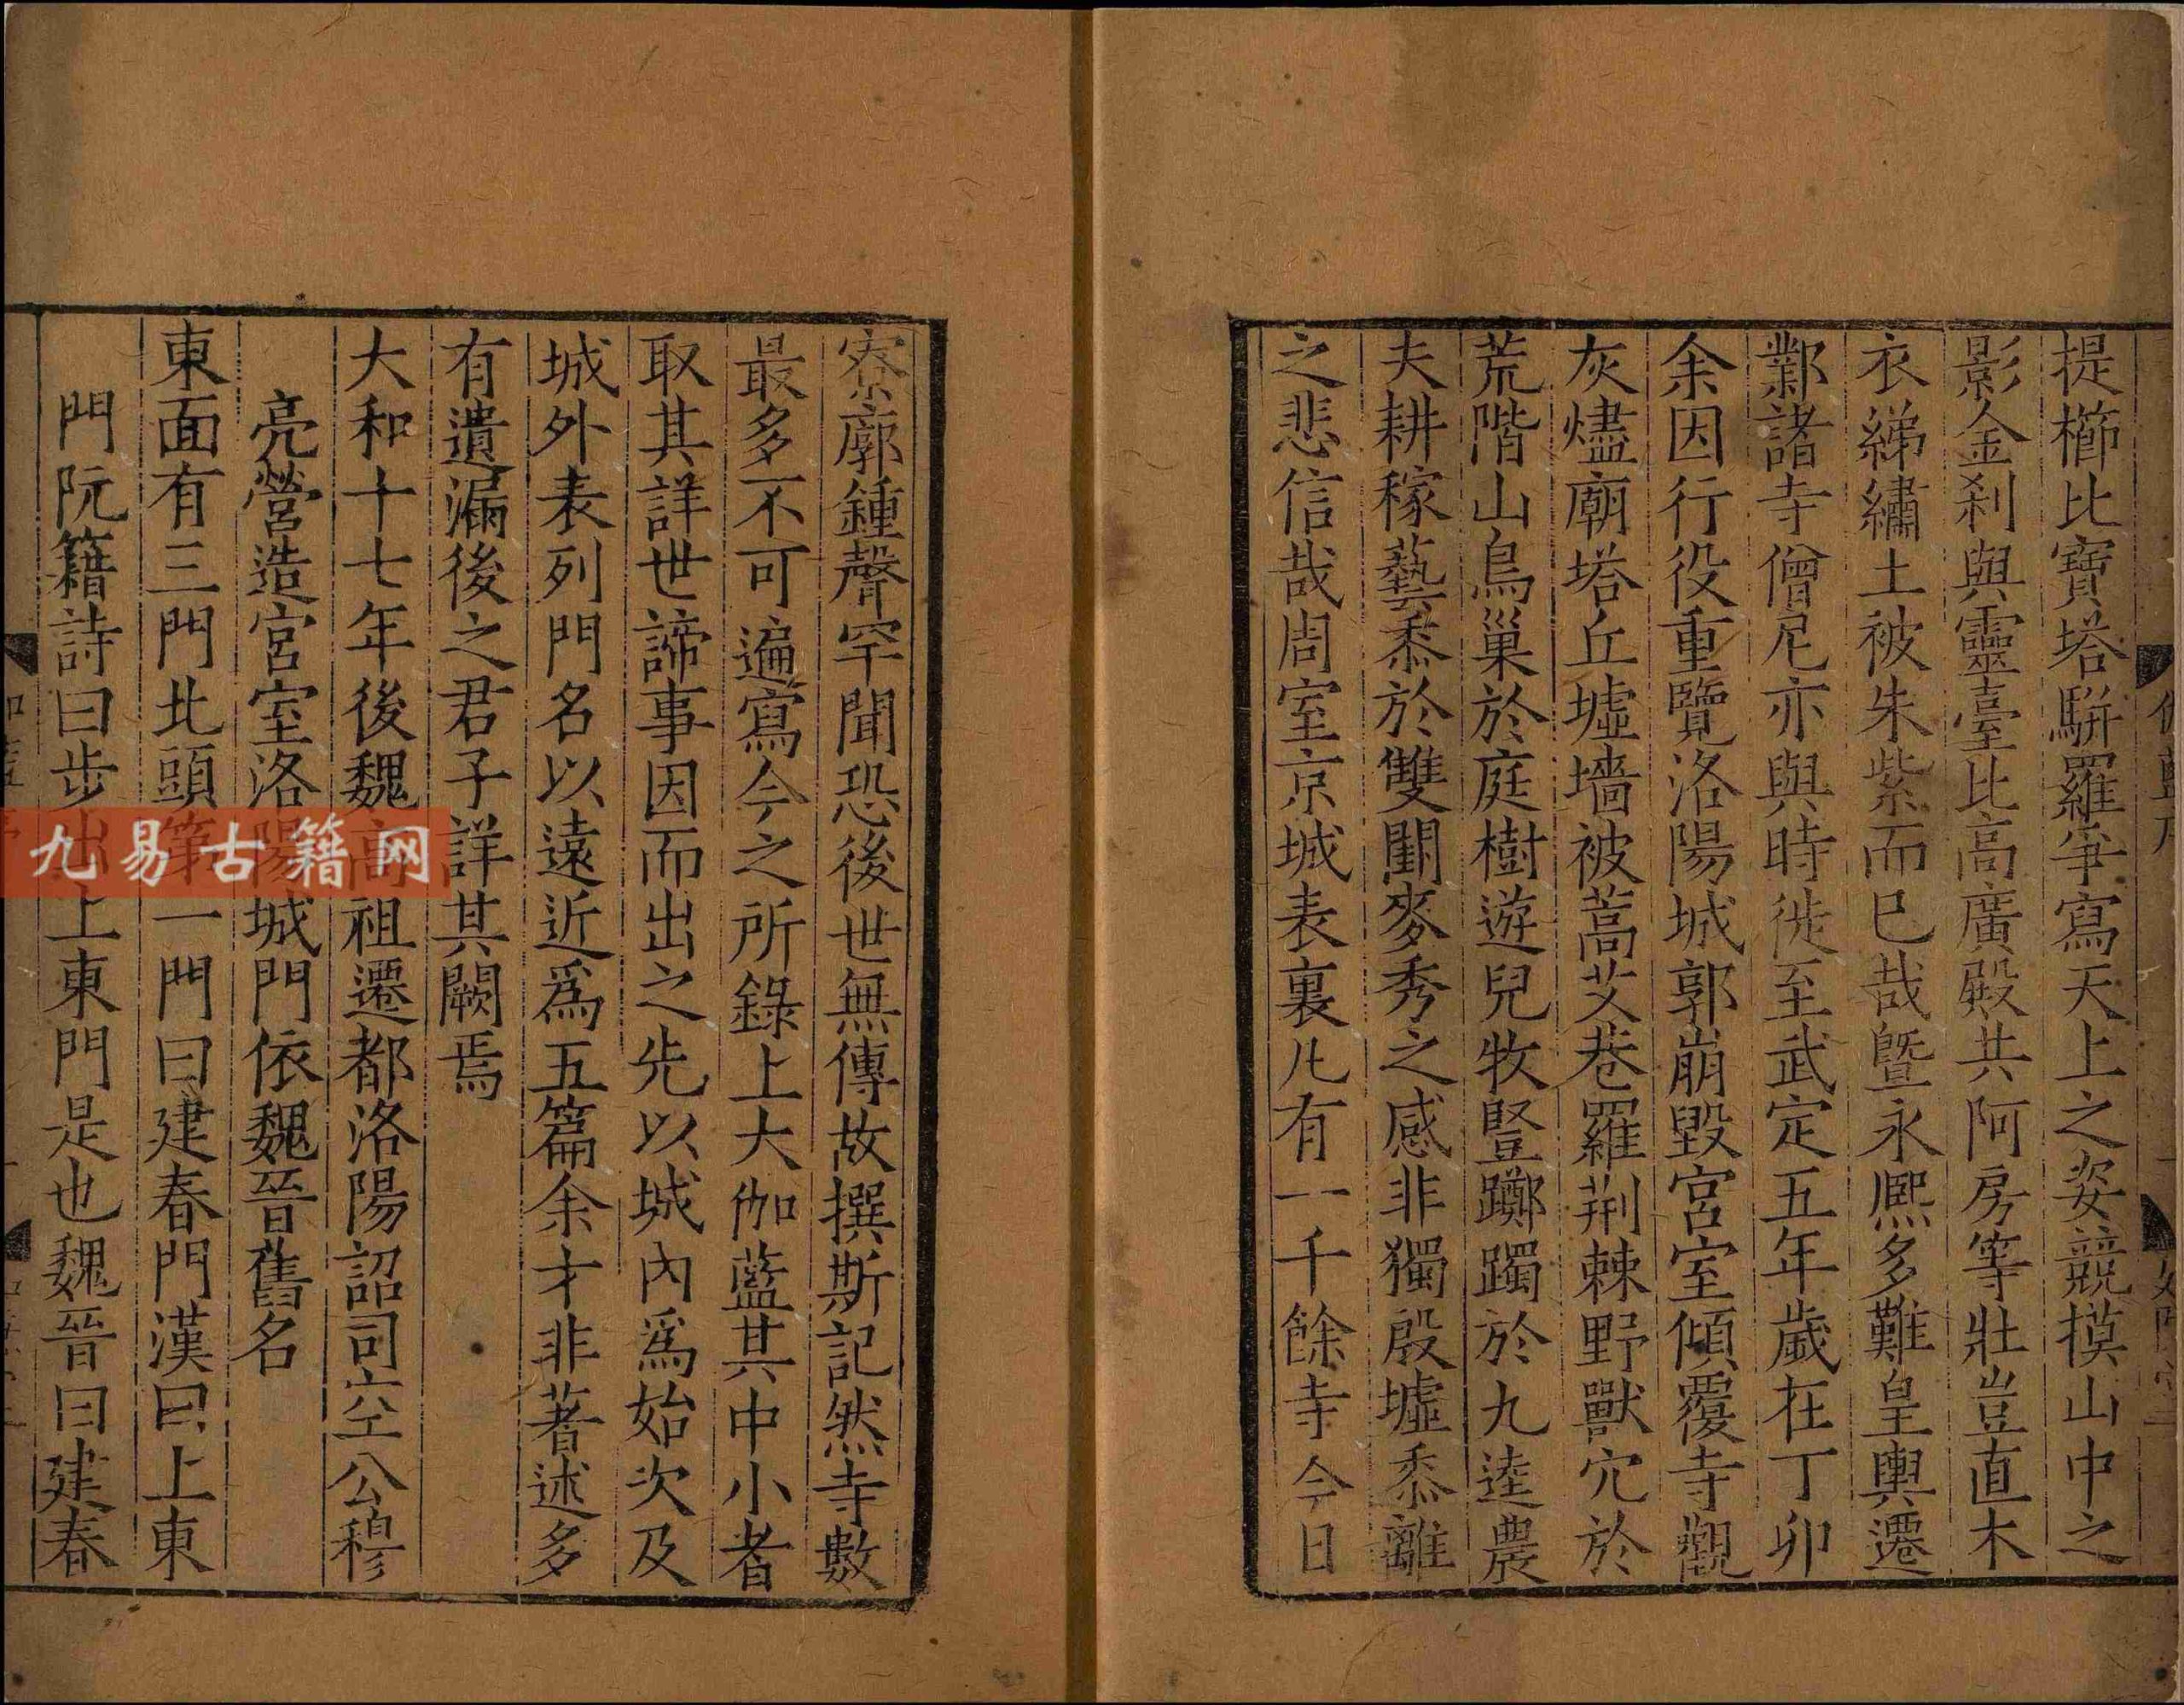 提櫛比寶塔駢羅爭寫天上之姿競摸山中之
影金刹與靈臺比高廣殿共阿房等壯豈直木
衣綈繡土被朱紫而已哉曁永熈多難皇輿遷
鄴諸寺僧尼亦與時徙至武定五年歲在丁卯
余因行役重覽洛陽城郭崩毀宮室傾覆寺觀
灰燼廟塔丘墟墻被蒿艾巷羅荆棘野獸穴於
荒階山鳥巢於庭樹遊兒牧豎躑躅於九逵農
夫耕稼藝黍於雙闕麥秀之感非獨殷墟黍離
之悲信哉周室京城表裏凡有一千餘寺今日
寮廓鍾聲罕聞恐後世無傳故撰斯記然寺數
最多不可遍寫今之所錄上大伽藍其中小者
取其詳世諦事因而出之先以城內爲始次及
城外表列門名以遠近爲五篇余才非著述多
有遺漏後之君子詳其闕焉
大和十七年後魏高祖遷都洛陽詔司空公穆
亮營造宮室洛陽城門依魏晉舊名
東面有三門北頭第一門曰建春門漢曰上東
門阮籍詩曰步出上東門是也魏晉曰建春
九易古籍网